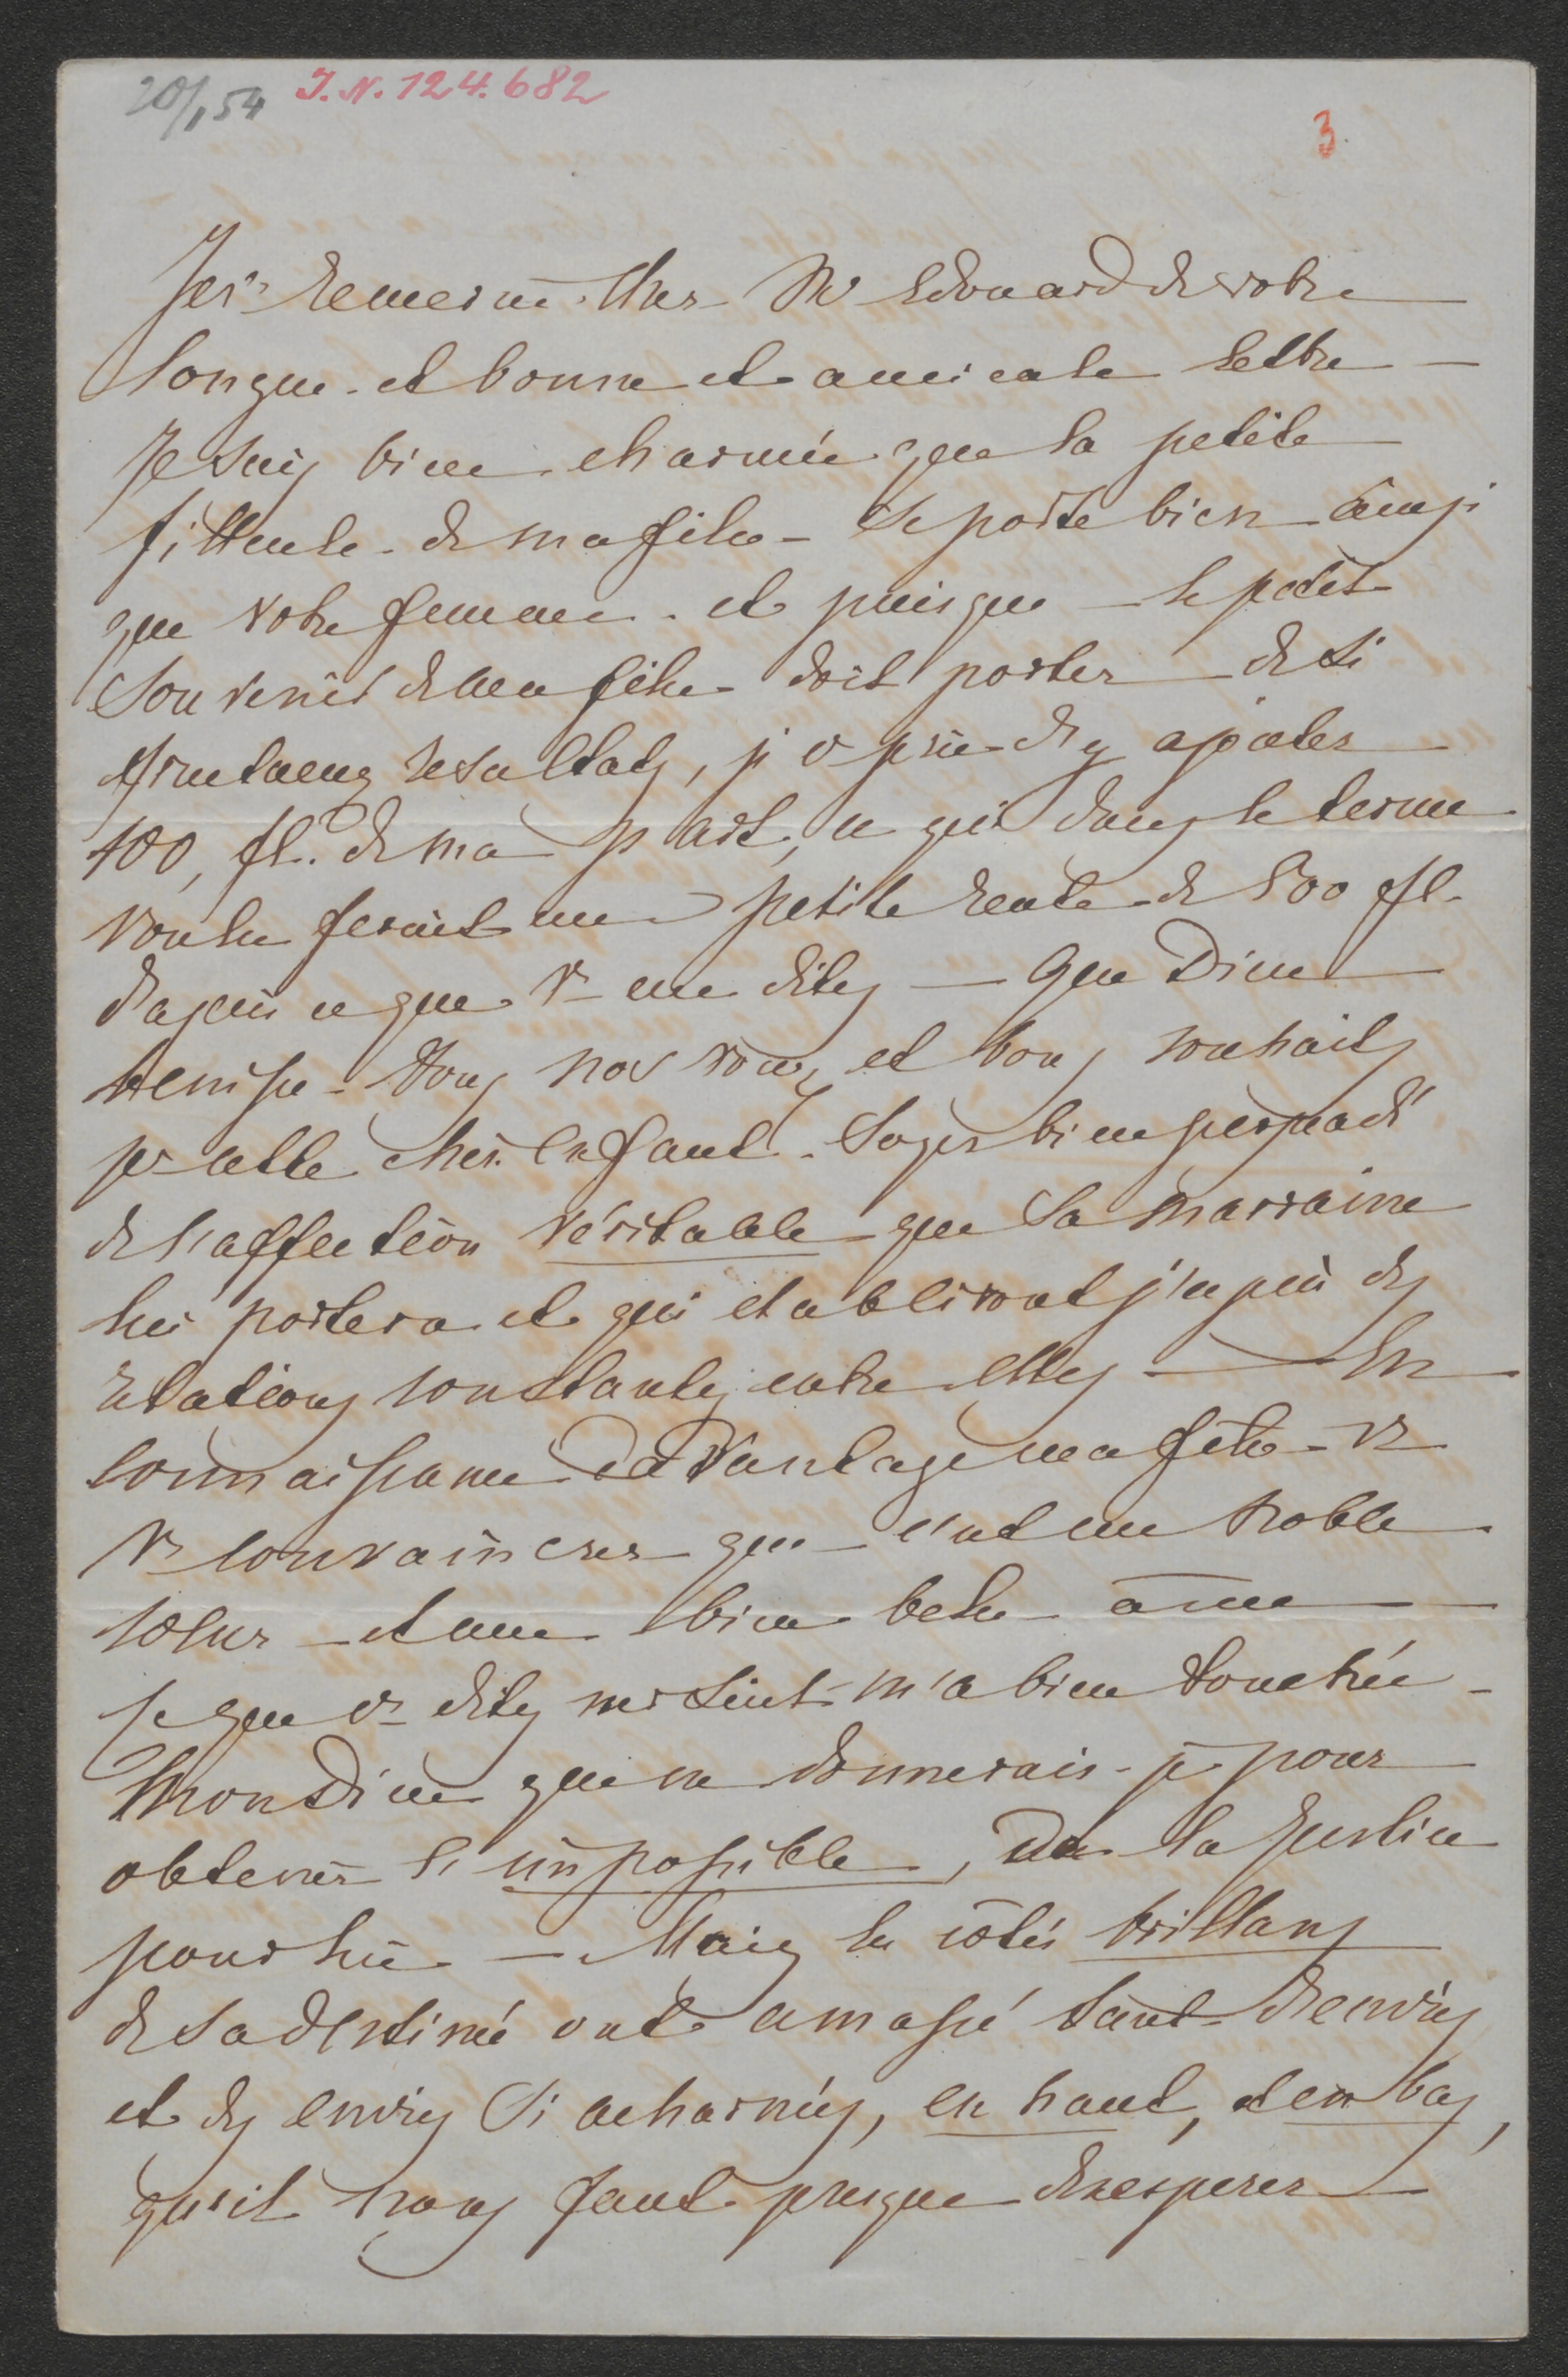 20/1 54 I.N. 124.682
3.
Je v. remercie cher Mr Edouard de votre
longue et bonne et amicale lettre —
Je suis bien charmée que la petite
filleule de ma fille — se porte bien ainsi
que votre femme. et puisque — le petit
souvenir de ma fille doit porter — de si
fructueux resultats, je v prie d'y ajouter
100, fl. de ma part, ce qui dans le terme
voulu ferait une petite rente de 500 fl.
d'après ce que v me dites — Que Dieu
benisse — tous nos vœux et bons souhaits
pr cette chère enfant. Soyez bien persuadé
de l'affection véritable que sa marraine
lui portera et qui etabliront j'espère des
relations constantes entre elles — En
connaissant davantage ma fille — v
v convaincrez que — c'est un noble
coeur — et une bien belle âme —
Ce que v dites m'a bien touchée —
Mon Dieu que ne donnerais-je pour
obtenir l'impossible, de la justice
pour lui — Mais le côté brillant
de sa destinée ont amassé tant d'envies
et des envies si acharnées, en haut, et en bas,
qu'il nous faut presque desesperer —